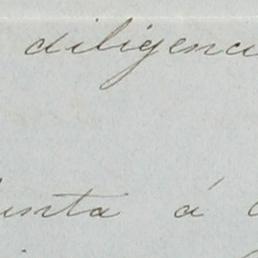 diligenci
unta á